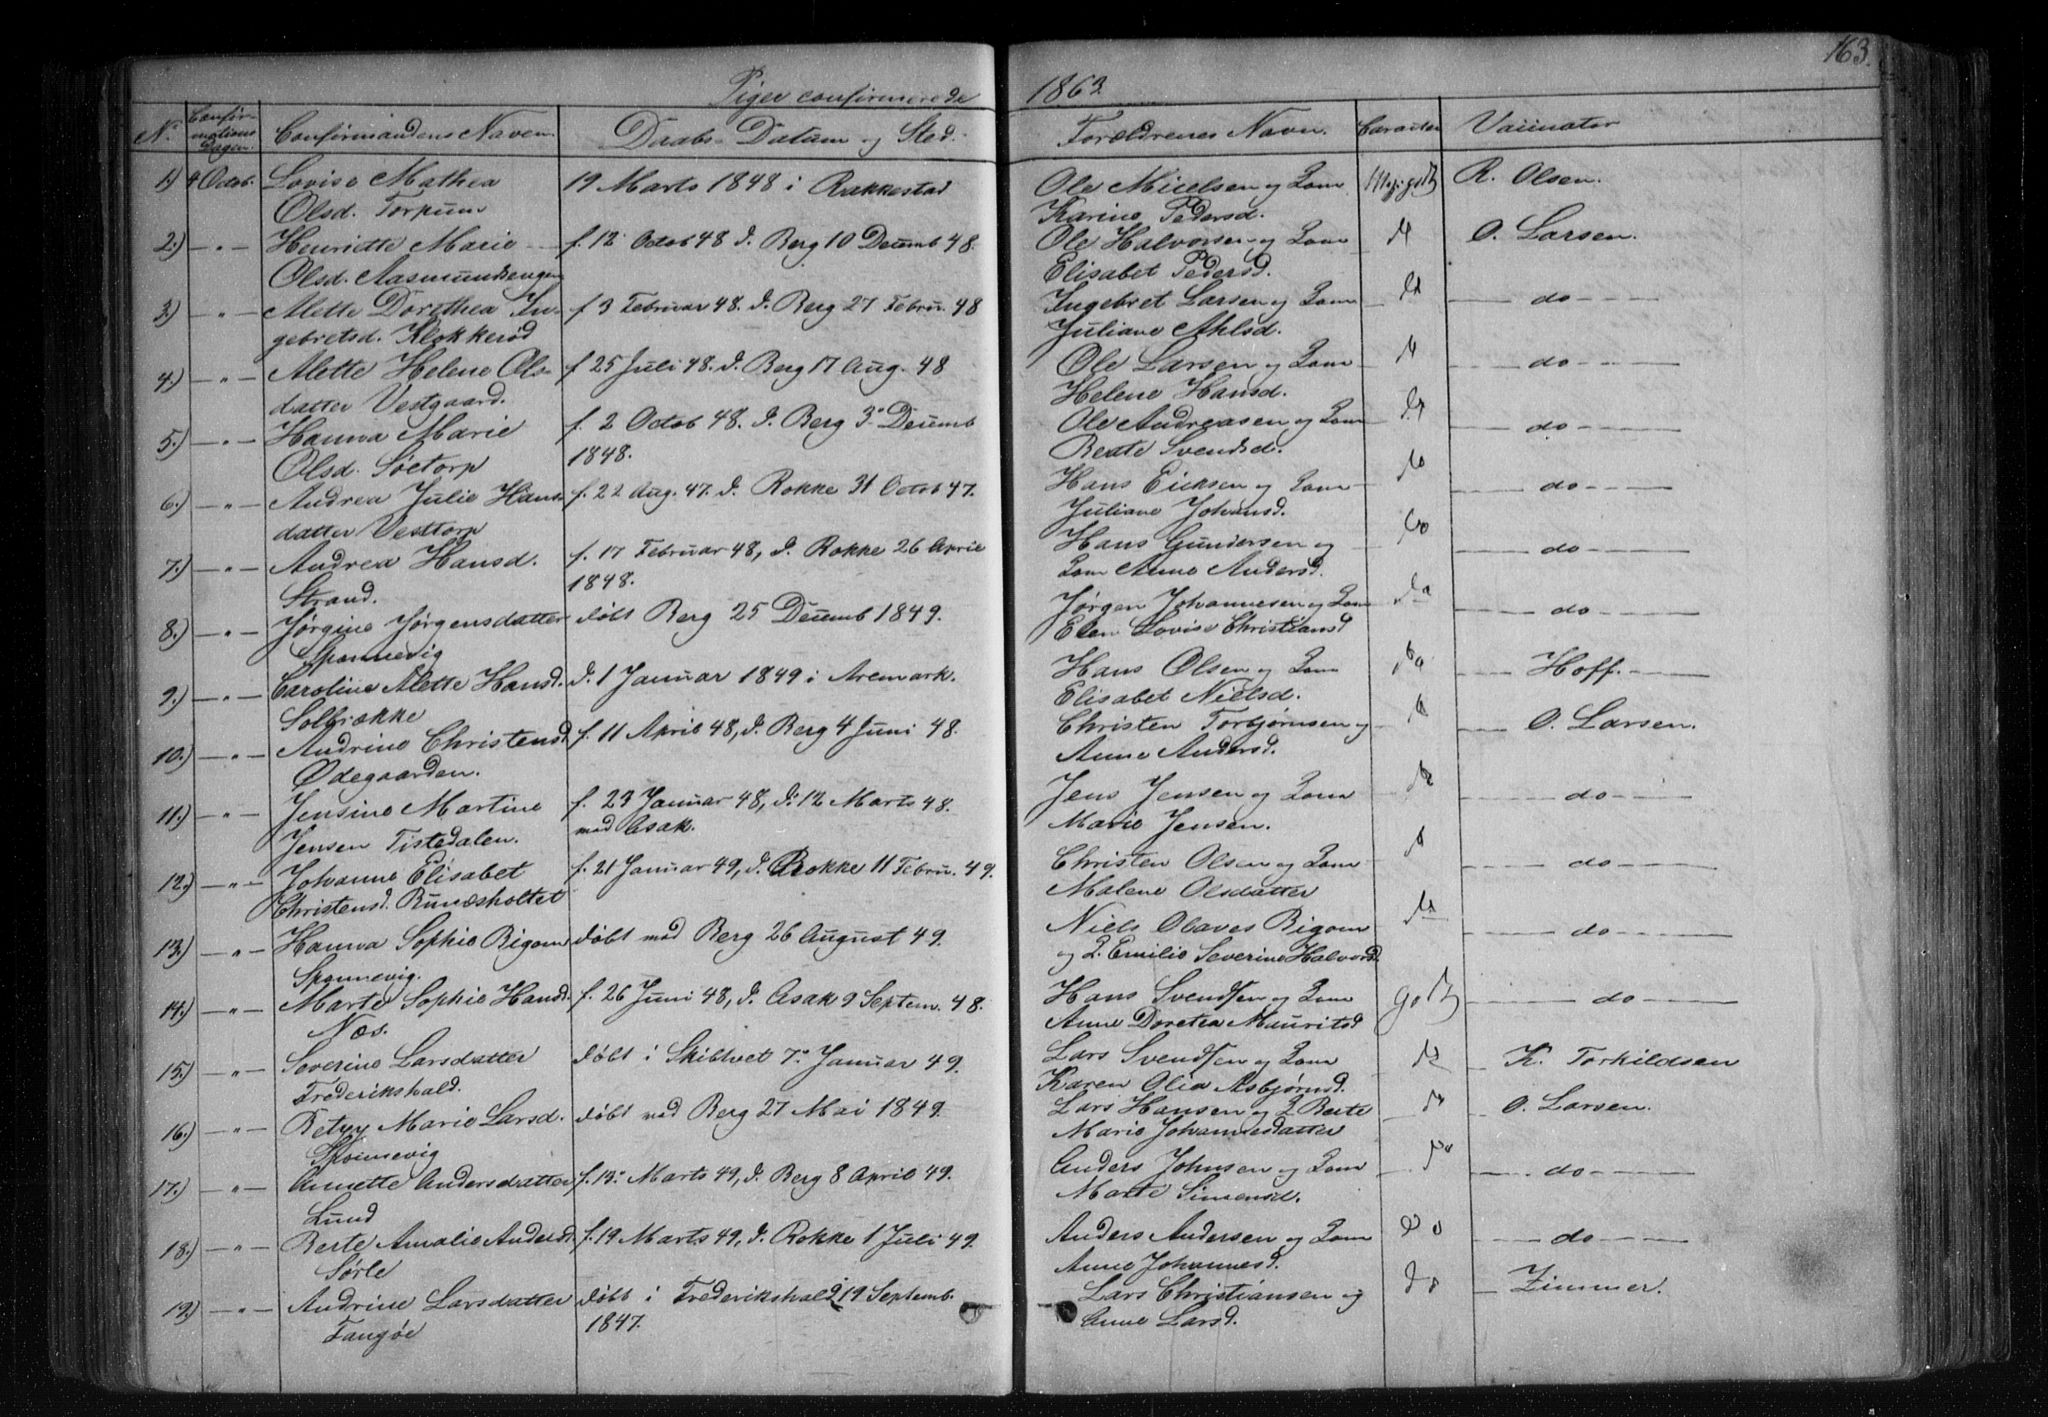 163.
Piger confirmerede 1863
No Confirmations Dagen. Confirmandens Navn. Daabs-Datum og Sted. Forældrenes Navn. Caracter Vaccinator
1) 4 Octob. Lovise Mathea 19 Marts 1848 i Rakkestad Ole Nielsen og Kone R. Olsen.
Olsd. Torpum Karine Pedersd.
2.) —"— Henriette Marie f. 12 Octob 48 d. Berg 10 Decemb 48. Ole Halvorsen og Kone O. Larsen.
Olsd. Aasmundsengen Elisabet Pedersd.
3.) —"— Mette Dorethea In- f 3 Februar 48. d. Berg 27 Febru. 48 Ingebret Larsen og Kone — do —
gebretsd. Klokkerød Juliane Ahlsd.
4.) —"— Alette Helene Ols- f 25 Juli 48. d. Berg 17 Aug. 48 Ole Larsen og Kone — do —
datter Vestgaard. Helene Hansd.
5.) —"— Hanna Marie f. 2 Octob 48. d. Berg 3 Decemb Ole Andreasen og Kone — do —
Olsd. Søetorp 1848. Berte Svendsd.
6.) —"— Andrea Julie Hans- f. 22 Aug. 47. d. Rokke 31 Octob 47. Hans Ericksen og Kone — do —
datter Vesttorp Juliane Johansd.
7.) —"— Andrea Hansd. f. 17 Februar 48, d. Rokke 26 April Hans Gundersen og — do —
Strand. 1848. Kone Anne Andersd.
8.) —"— Jørgine Jørgensdatter døbt Berg 25 Decemb 1849. Jørgen Johannesen og Kone — do —
Sponnevig Elen Lovise Christiansd
9.) —"— Caroline Alette Hansd. d. 1 Januar 1849 i Aremark. Hans Olsen og Kone — Hoff. —
Solbrække Elisabet Nielsd.
10.) —"— Andrine Christensd. f. 11 April 48, d. Berg 4 Juni 48. Christen Torbjørnsen og — O. Larsen.
Ødegaarden. Anne Andersd.
11.) —"— Jensine Martine f. 23 Januar 48, d. 12 Marts 48. Jens Jensen og Kone — do —
Jensen Tistedalen. ved Asak. Marie Jensen.
12.) —"— Johanne Elisabet f. 21 Januar 49, d. Rokke 11 Febru. 49. Christen Olsen og Kone — do —
Christensd. Bundsholtet Malene Olsdatter
13.) —"— Hanna Sophie Bigom døbt ved Berg 26 August 49. Niels Olaves Bigom — do —
Sponnevig. og K. Emilie Severine Halvorsd.
14.) —"— Marte Sophie Hansd. f. 26 Juni 48, d. Asak 9 Septem. 48. Hans Svendsen og Kone — do —
Næs. Anne Dorctea Mauritsd
15.) —"— Severine Larsdatter døbt i Skibtvet 7 Januar 49. Lars Svendsen og Kone — K. Torkildsen
Frederikshald. Karen Olia Asbjørnsd.
16.) —"— Betzy Marie Larsd. døbt ved Berg 27 Mai 1849. Lars Hansen og K Berte O. Larsen.
Sponnevig Marie Johannesdatter
17.) —"— Annette Andersdatter f. 13 Marts 49, d. Berg 8 April 49. Anders Johnsen og Kone — do —
Lund Marte Simensd.
18.) —"— Berte Amalie Andersd. f. 19 Marts 49, d. Rokke 1 Juli 49. Anders Andersen og Kone — do —
Sørle Anne Johannesd.
19.) —"— Andrine Larsdatter døbt i Frederikshald 19 Septemb. Lars Christiansen og — Zimmer.
Tangøe 1847. Anne Larsd.